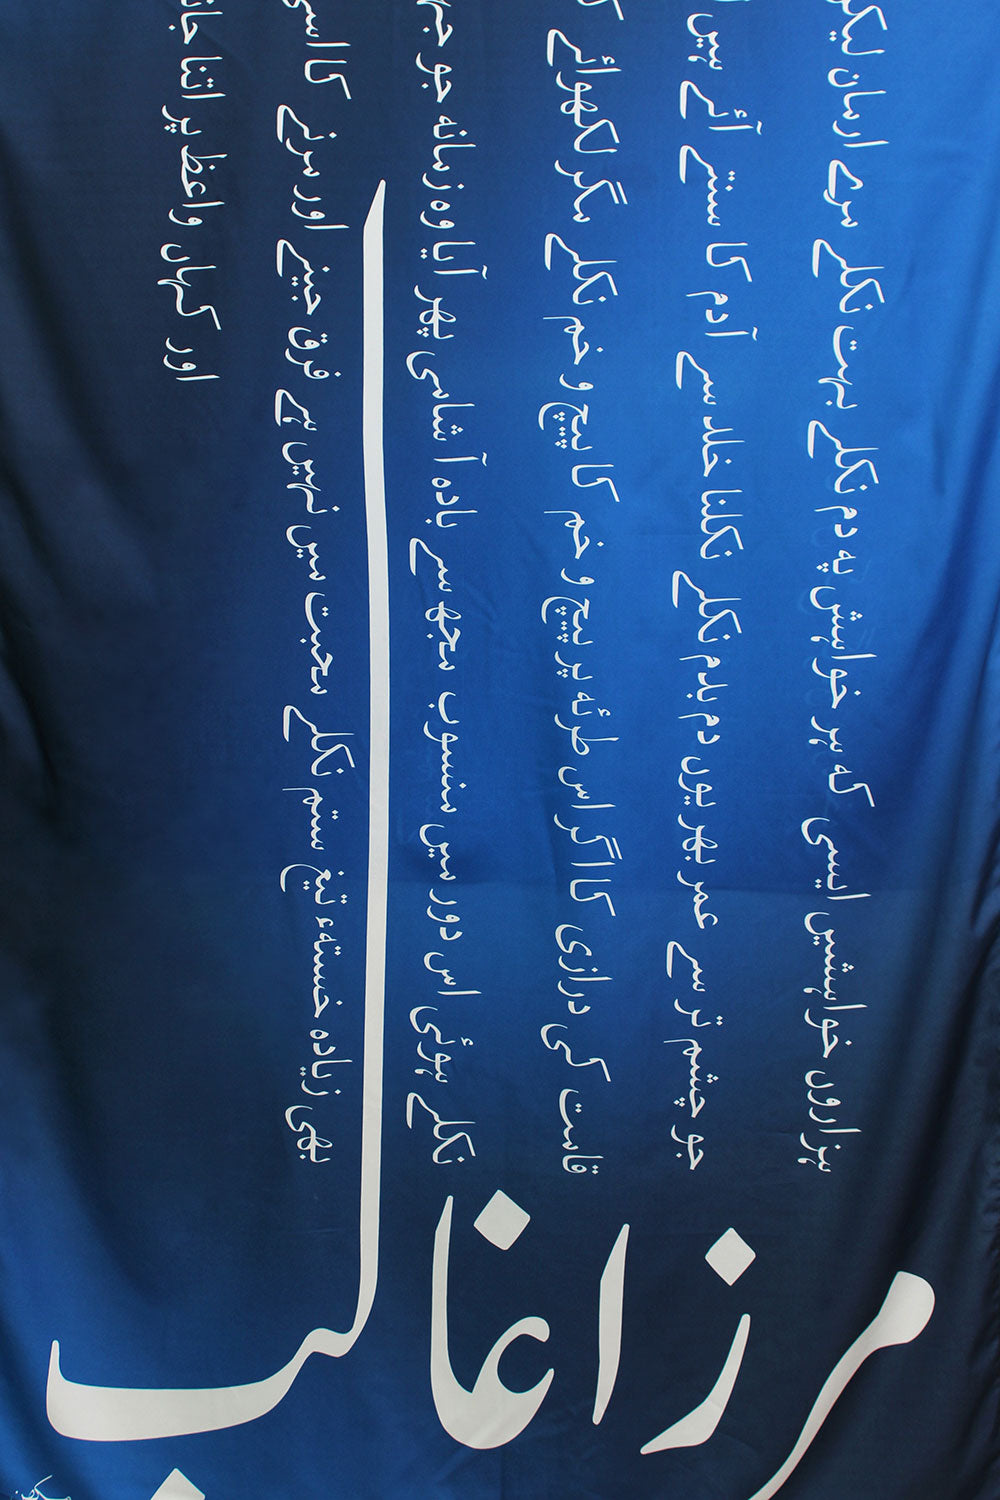 ہزاروں خواہشیں ایسی کہ ہر خواہش پہ دم نکلے بہت نکلے مرے ارمان لیکن
جو چشم تر سے عمر بھر یوں دم بدم نکلے نکلنا خلد سے آدم کا سنتے آئے ہیں
قامت کی درازی کا اگر اس طرئہ پر پیچ و خم کا پیچ و خم نکلے مگر لکھوائے
نکلے ہوئی اس دور میں منسوب مجھ سے بادہ آ شامی پھر آیا وہ زمانہ جو
بھی زیادہ خستہء تیغ ستم نکلے محبت میں نہیں ہے فرق جینے اور مرنے کا اسی
اور کہاں واعظ پر اتنا
مرزا غالب